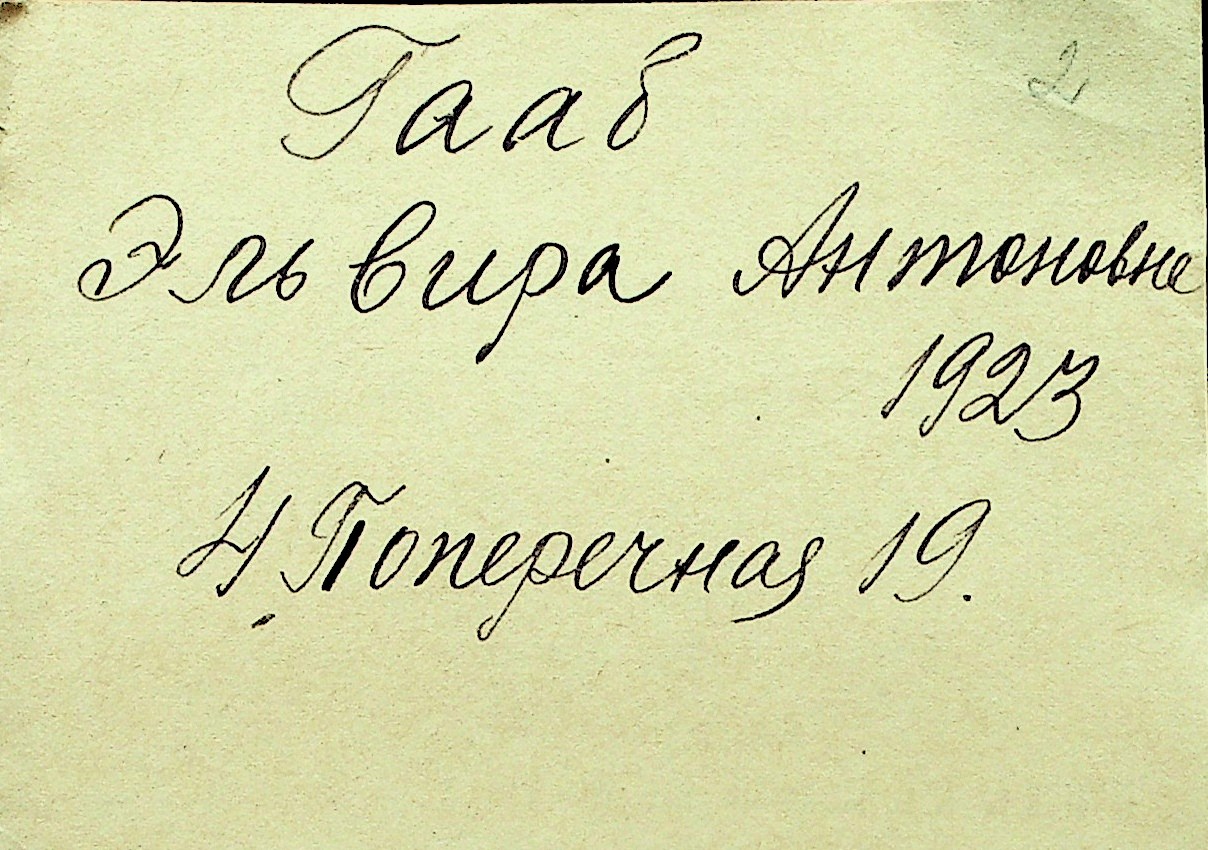 2
Гааб
Эльвира Антоновна
1923
4, Поперечная 19.